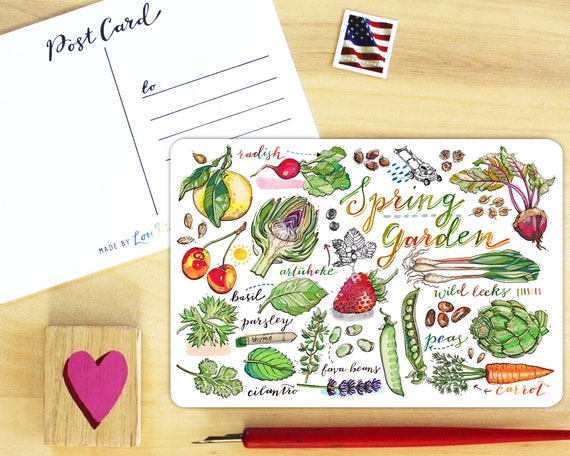 Post Card
to:
MADE BY Lou
radish
Spring
Garden
artichoke
basil
parsley
thyme
cilantro
fava beans
wild leeks
peas
carrot